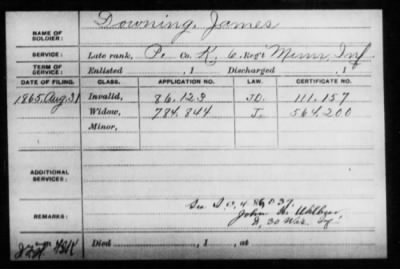 NAME OF SOLDIER: Downing, James
SERVICE: Late rank, P. Co. K, 6 Reg't Minn. Inf.
TERM OF SERVICE: Enlisted , 1 Discharged , 1
DATE OF FILING. CLASS. APPLICATION NO. LAW. CERTIFICATE NO.
1865, Aug. 31 Invalid, 86.123 111.157
Widow, 784.844 564.200
Minor,
ADDITIONAL SERVICES:
See 4
REMARKS: John
D, 30 Wis.
Died , 1 , at